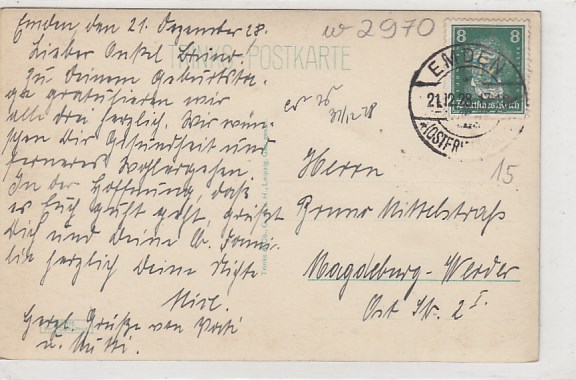 Emden den 21. Dezember 28.
Lieber Onkel
Zu Deinem Geburtsta-
ge gratulieren wir
alle drei herzlich. Wir wün-
schen Dir Gesundheit und
ferneres Wohlergehen.
In der Hoffnung, daß
es Euch gut geht, grüßt
Dich und Deine lb. Fami-
lie herzlich Deine Nichte
Herzl. Grüße von
u. Mutti.
TRINKS-POSTKARTE
w 2970
8 8
Deutsches Reich
EMDEN
21.12.28
31/12 28
15
Herrn
Bruno Mittelstraß
Magdeburg-Werder
Ost Str. 2 I.